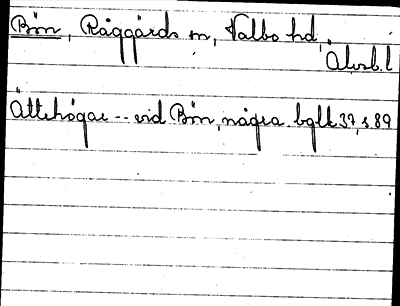 Bön, Råggärds sn, Valbo hd,
Älvsb.l
Ättehögar -- vid Bön, några. bglk 37, s.89